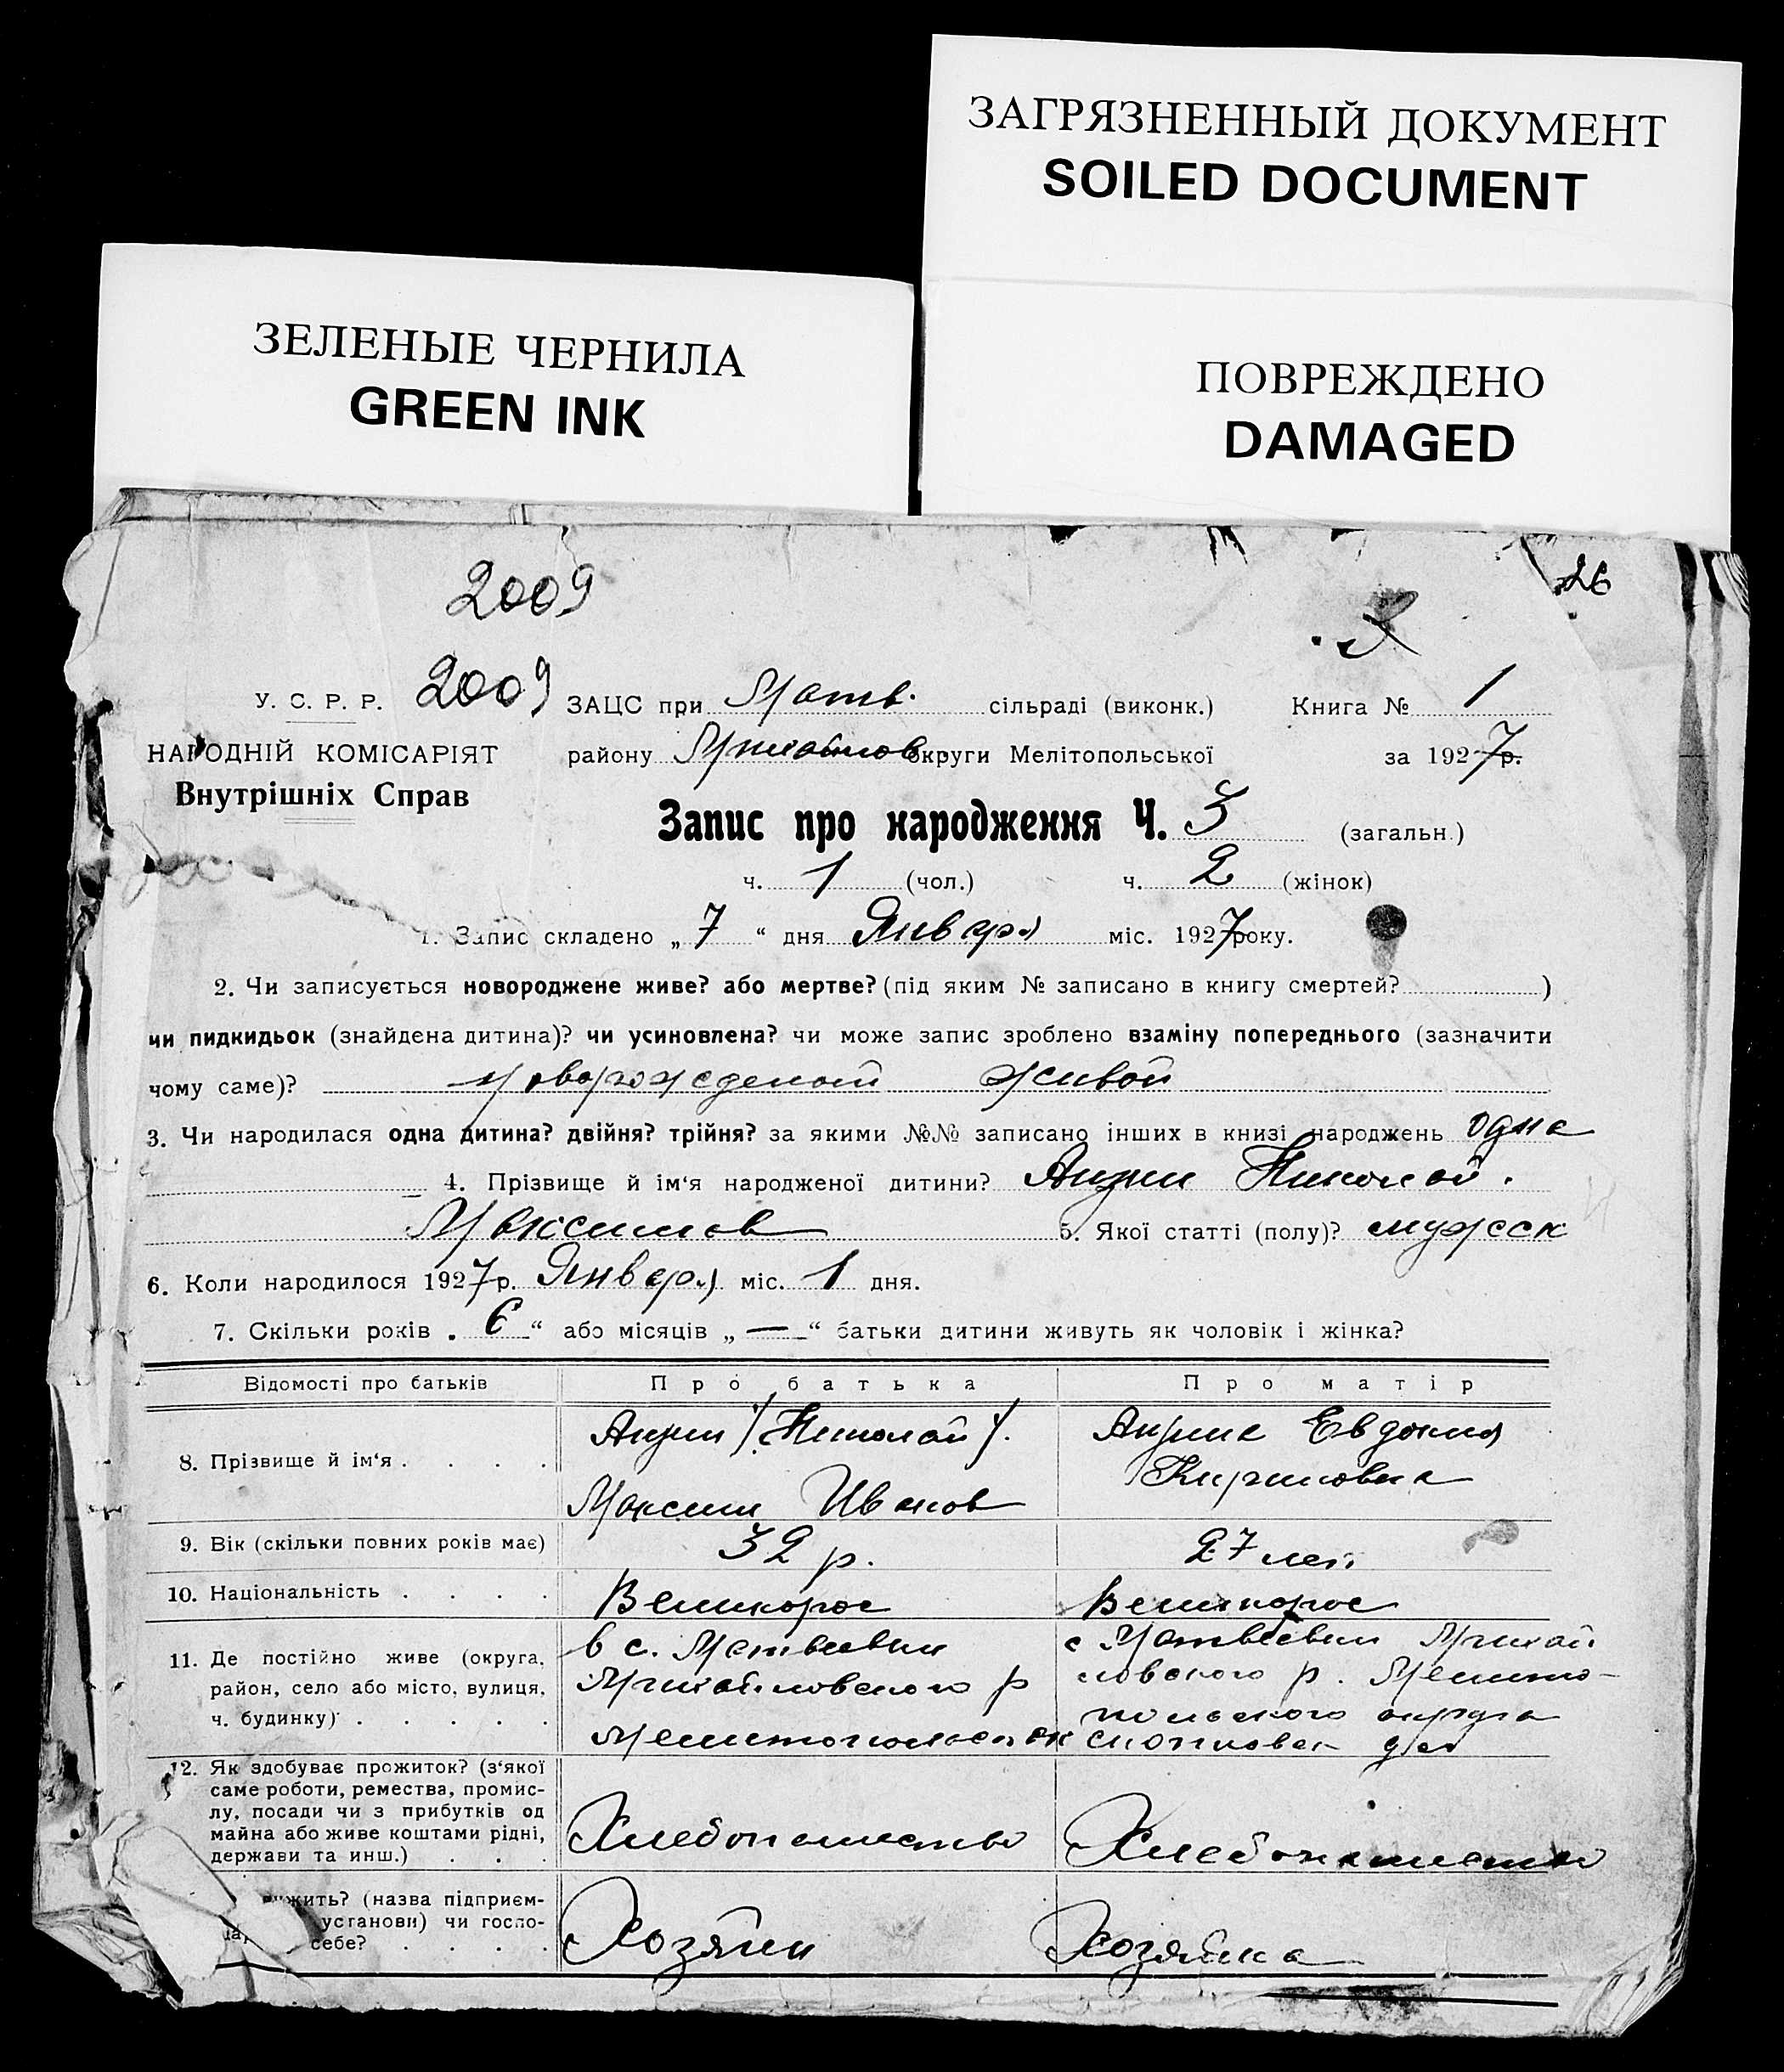 ЗАГРЯЗНЕННЫЙ ДОКУМЕНТ
SOILED DOCUMENT
ЗЕЛЕНЫЕ ЧЕРНИЛА
GREEN INK
ПОВРЕЖДЕНО
DAMAGED
2009
26
У. С. Р. Р. 2009 ЗАЦС при Матв. сільраді (виконк.) Книга № 1
НАРОДНІЙ КОМІСАРІЯТ району Михайлов округи Мелітопольської за 1927 р.
Внутрішніх Справ
Запис про народження Ч. 3 (загальн.)
ч. 1 (чол.) ч. 2 (жінок)
1. Запис складено „ 7 “ дня Января міс. 1927 року.
2. Чи записується новороджене живе? або мертве? (під яким № записано в книгу смертей? )
чи пидкидьок (знайдена дитина)? чи усиновлена? чи може запис зроблено взаміну попереднього (зазначити
чому саме)? новорожденой живой
3. Чи народилася одна дитина? двійня? трійня? за якими №№ записано інших в книзі народжень одна
4. Прізвище й ім‘я народженої дитини? Николай.
Максимов 5. Якої статті (полу)? мужеск
6. Коли народилося 1927 р. Января міс. 1 дня.
7. Скільки років „ 6 “ або місяців „ — “ батьки дитини живуть як чоловік і жінка?
Відомості про батьків Про батька Про матір
8. Прізвище й ім‘я . . . . (Николай). Евдокия
Кириловна
Максим Иванов
9. Вік (скільки повних років має) 32 р. 27 лет
10. Національність . . . . Великорос Великорос
11. Де постійно живе (округа, в с. Матвеевки с Матвеевки Михай
район, село або місто, вулиця, Михайловского р ловского р. Мелито-
ч. будинку) . . . . . польского округа
Мелитопольск ок
12. Як здобуває прожиток? (з‘якої
саме роботи, ремества, промис-
лу, посади чи з прибутків од
майна або живе коштами рідні, Хлебопашество Хлебопашество
держави та инш.) . . .
(назва підприєм-
установи) чи госпо-
себе? . . . . Хозяин Хозяйка